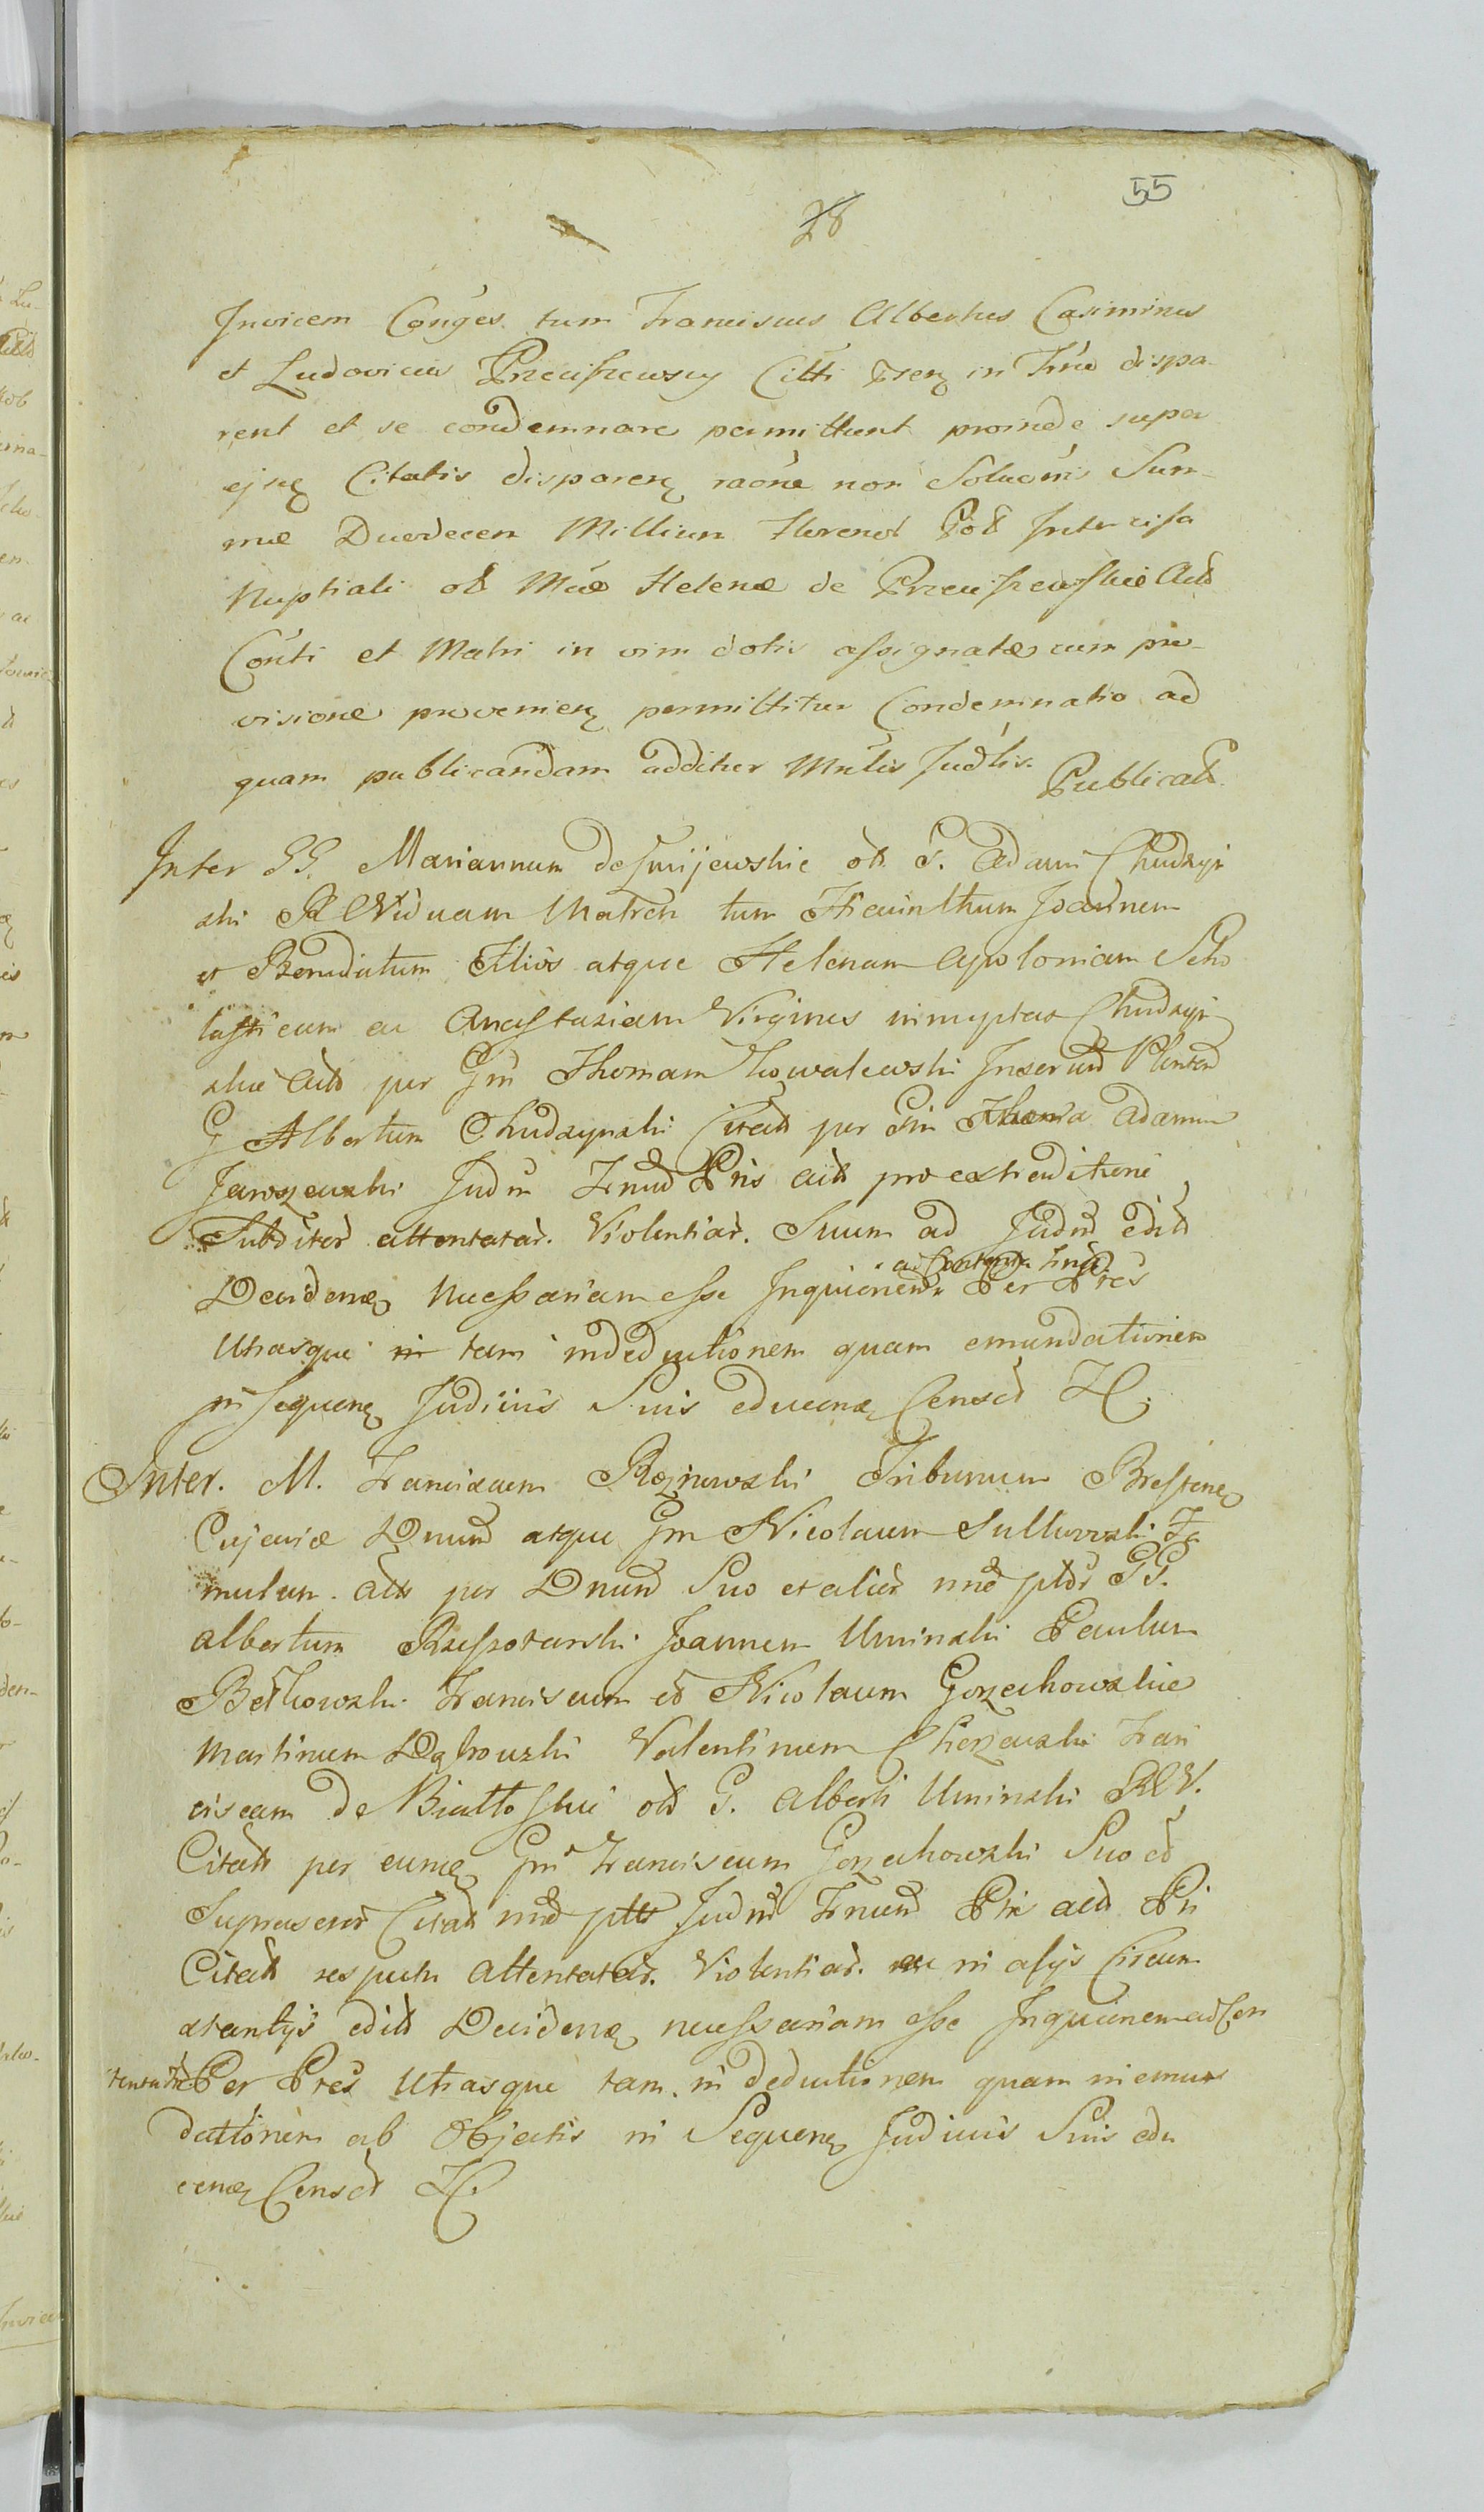 55
28
Invicem Conges tum Franciscus Albertus Casimirus
et Ludovicus Przeciszewscy Citti in dispa-
rent et se condemnare permittunt proinde super
ejsq Citatis disparenq raone non Soluonis Sum-
mæ Duodecem Millium Florenor Intercisa
Nuptiali olt Mcæ Helenæ de Przeciszewskie Act
Conti et Matri in vim dotis assignatæ cum pro-
visione provenienq permittitur Condemnatio ad
quam publicandam additur Mnlis Judlis. Publicatt
Inter GG. Mariannam de Smijewskie olt G. Adami Chudzyn
ski Viduam Matrem tum Hiacinthum Joannem
et Benedictum Filios atque Helenam Apoloniam Scho
lasticam ac Anastaziam Virgines innuptas Chudzyn
skie Actt per Gm Thomam Kowalewski
G Albertum Chudzynski Citatt per Gm Adamum
Jarszewski Judm Trnud Ptis actt pro extraditione
Subditor attentatar. Violentiar. Suum ad Judm editt
Decidenq necessariam esse Inquionem Per Ptes
ad Contenta
Utrasque in tam indeductionem quam emundationem
in sequenq Judiciis Suis educenq Censet
Inter. M. Franciscum Tribunum Brestenq
Cujaviæ Dnum atque Gm Nicolaum Sultowski Fa
mulum. Actt per Dnum Suo et alior nne pttor GG.
Albertum Joannem Uminski Paulum
Betkowski Franciscum et Nicolaum Gorzechowskie
Martinum Dąbrowski Valentinum Fran
ciscam de Białłoskie olt G. Alberti Uminski RV.
Citatt per eumq Gm Franciscum Gorzechowski Suo et
Suprascrr Citatt nne ptt Judm Trnud Ptis actt Pti
Citatt respectu Attentatar. Violentiar. ac in alijs Circum
stantijs editt Decidenq necessariam esse Inquionem ad Con
tenta Per Ptes Utrasque tam in deductionem quam in emun
dationem ab Objectis in Sequenq Judiciis Suis edu
cenq Censet